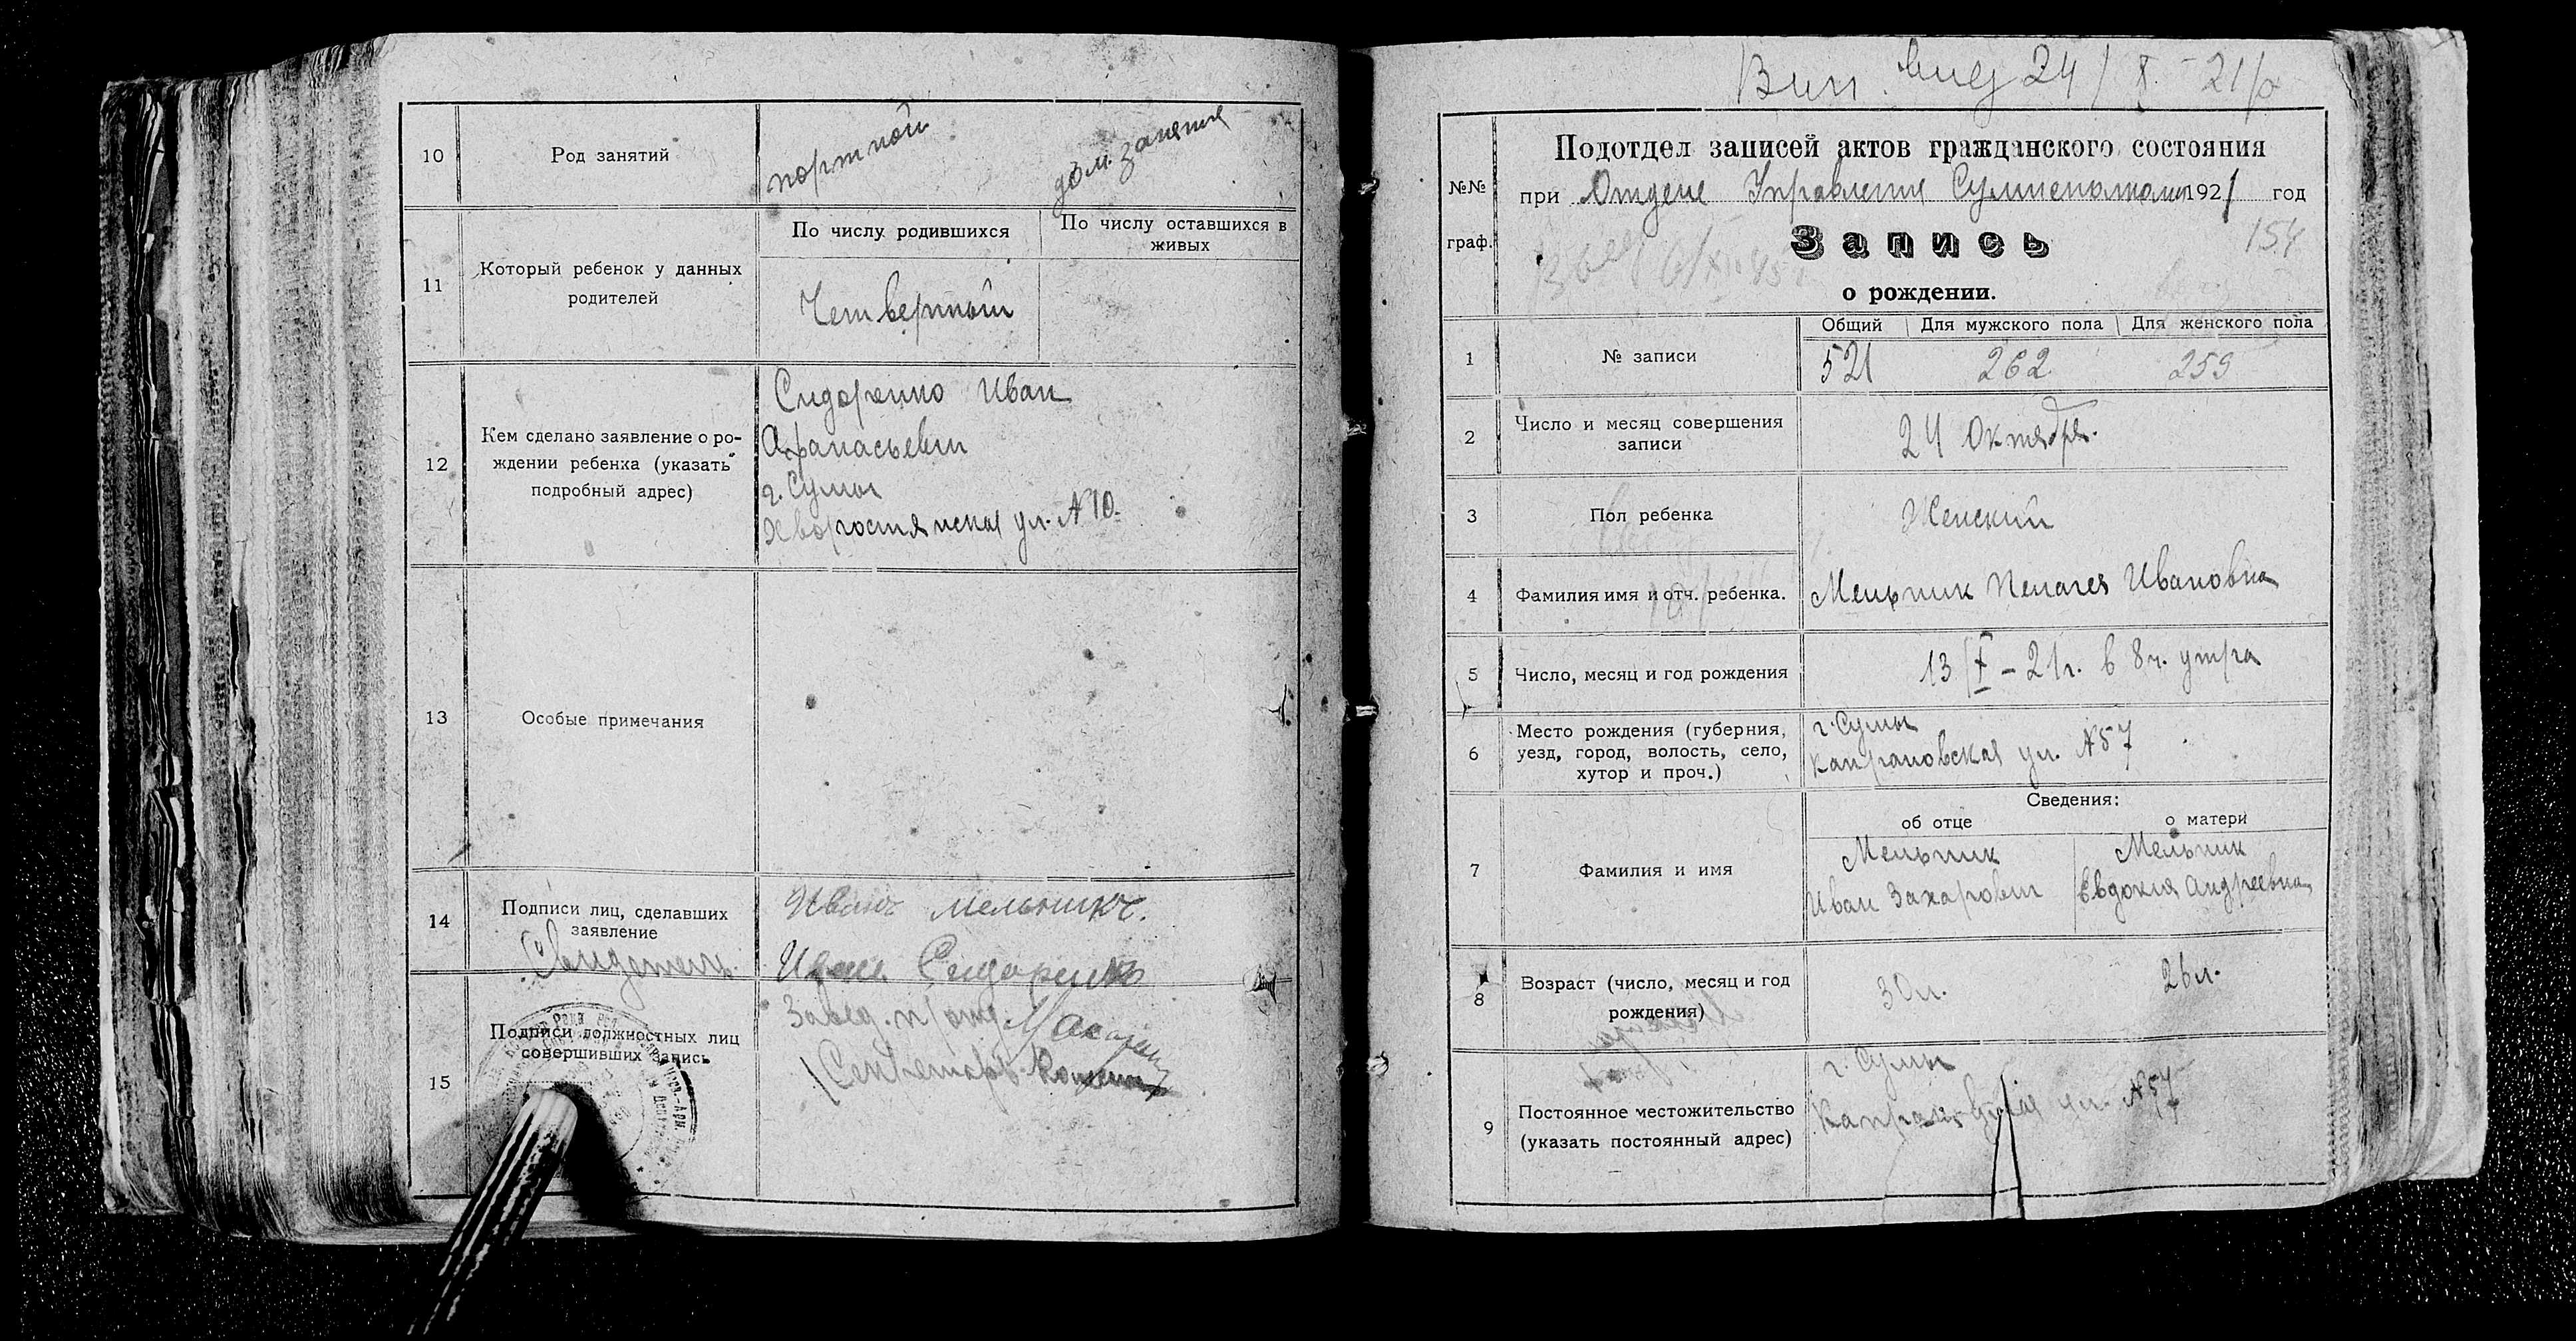 10
Род занятий
портной
дом. занятия
11
Который ребенок у данных
родителей
По числу родившихся
По числу оставшихся в
живых
Четвертый
12
Кем сделано заявление о ро-
ждении ребенка (указать
подробный адрес)
Сидоренко Иван
Афанасьевич
г. Сумы
Хворостянская ул. № 10.
13
Особые примечания
14
Подписи лиц, сделавших
заявление
Иванъ Мельникъ.
Иван Сидоренко
15
Подписи должностных лиц
совершивших запись
Завед. п/отд
Секретарь
24/X - 21 р
№№
граф.
Подотдел записей актов гражданского состояния
при Отделе Управления 1921 год
154
Запись
о рождении.
1
№ записи
Общий
Для мужского пола
Для женского пола
521
262
259
2
Число и месяц совершения
записи
24 Октября.
3
Пол ребенка
Женский
4
Фамилия имя и отч. ребенка.
Мельник Пелагея Ивановна
5
Число, месяц и год рождения
13/X - 21 г. в 8 ч. утра
6
Место рождения (губерния,
уезд, город, волость, село,
хутор и проч.)
г. Сумы
Капрановская ул. № 57
7
Фамилия и имя
Сведения:
об отце
о матери
Мельник
Иван Захарович
Мельник
Евдокия Андреевна
8
Возраст (число, месяц и год
рождения)
30 л.
26 л.
9
Постоянное местожительство
(указать постоянный адрес)
г. Сумы
Капрановская ул. № 57